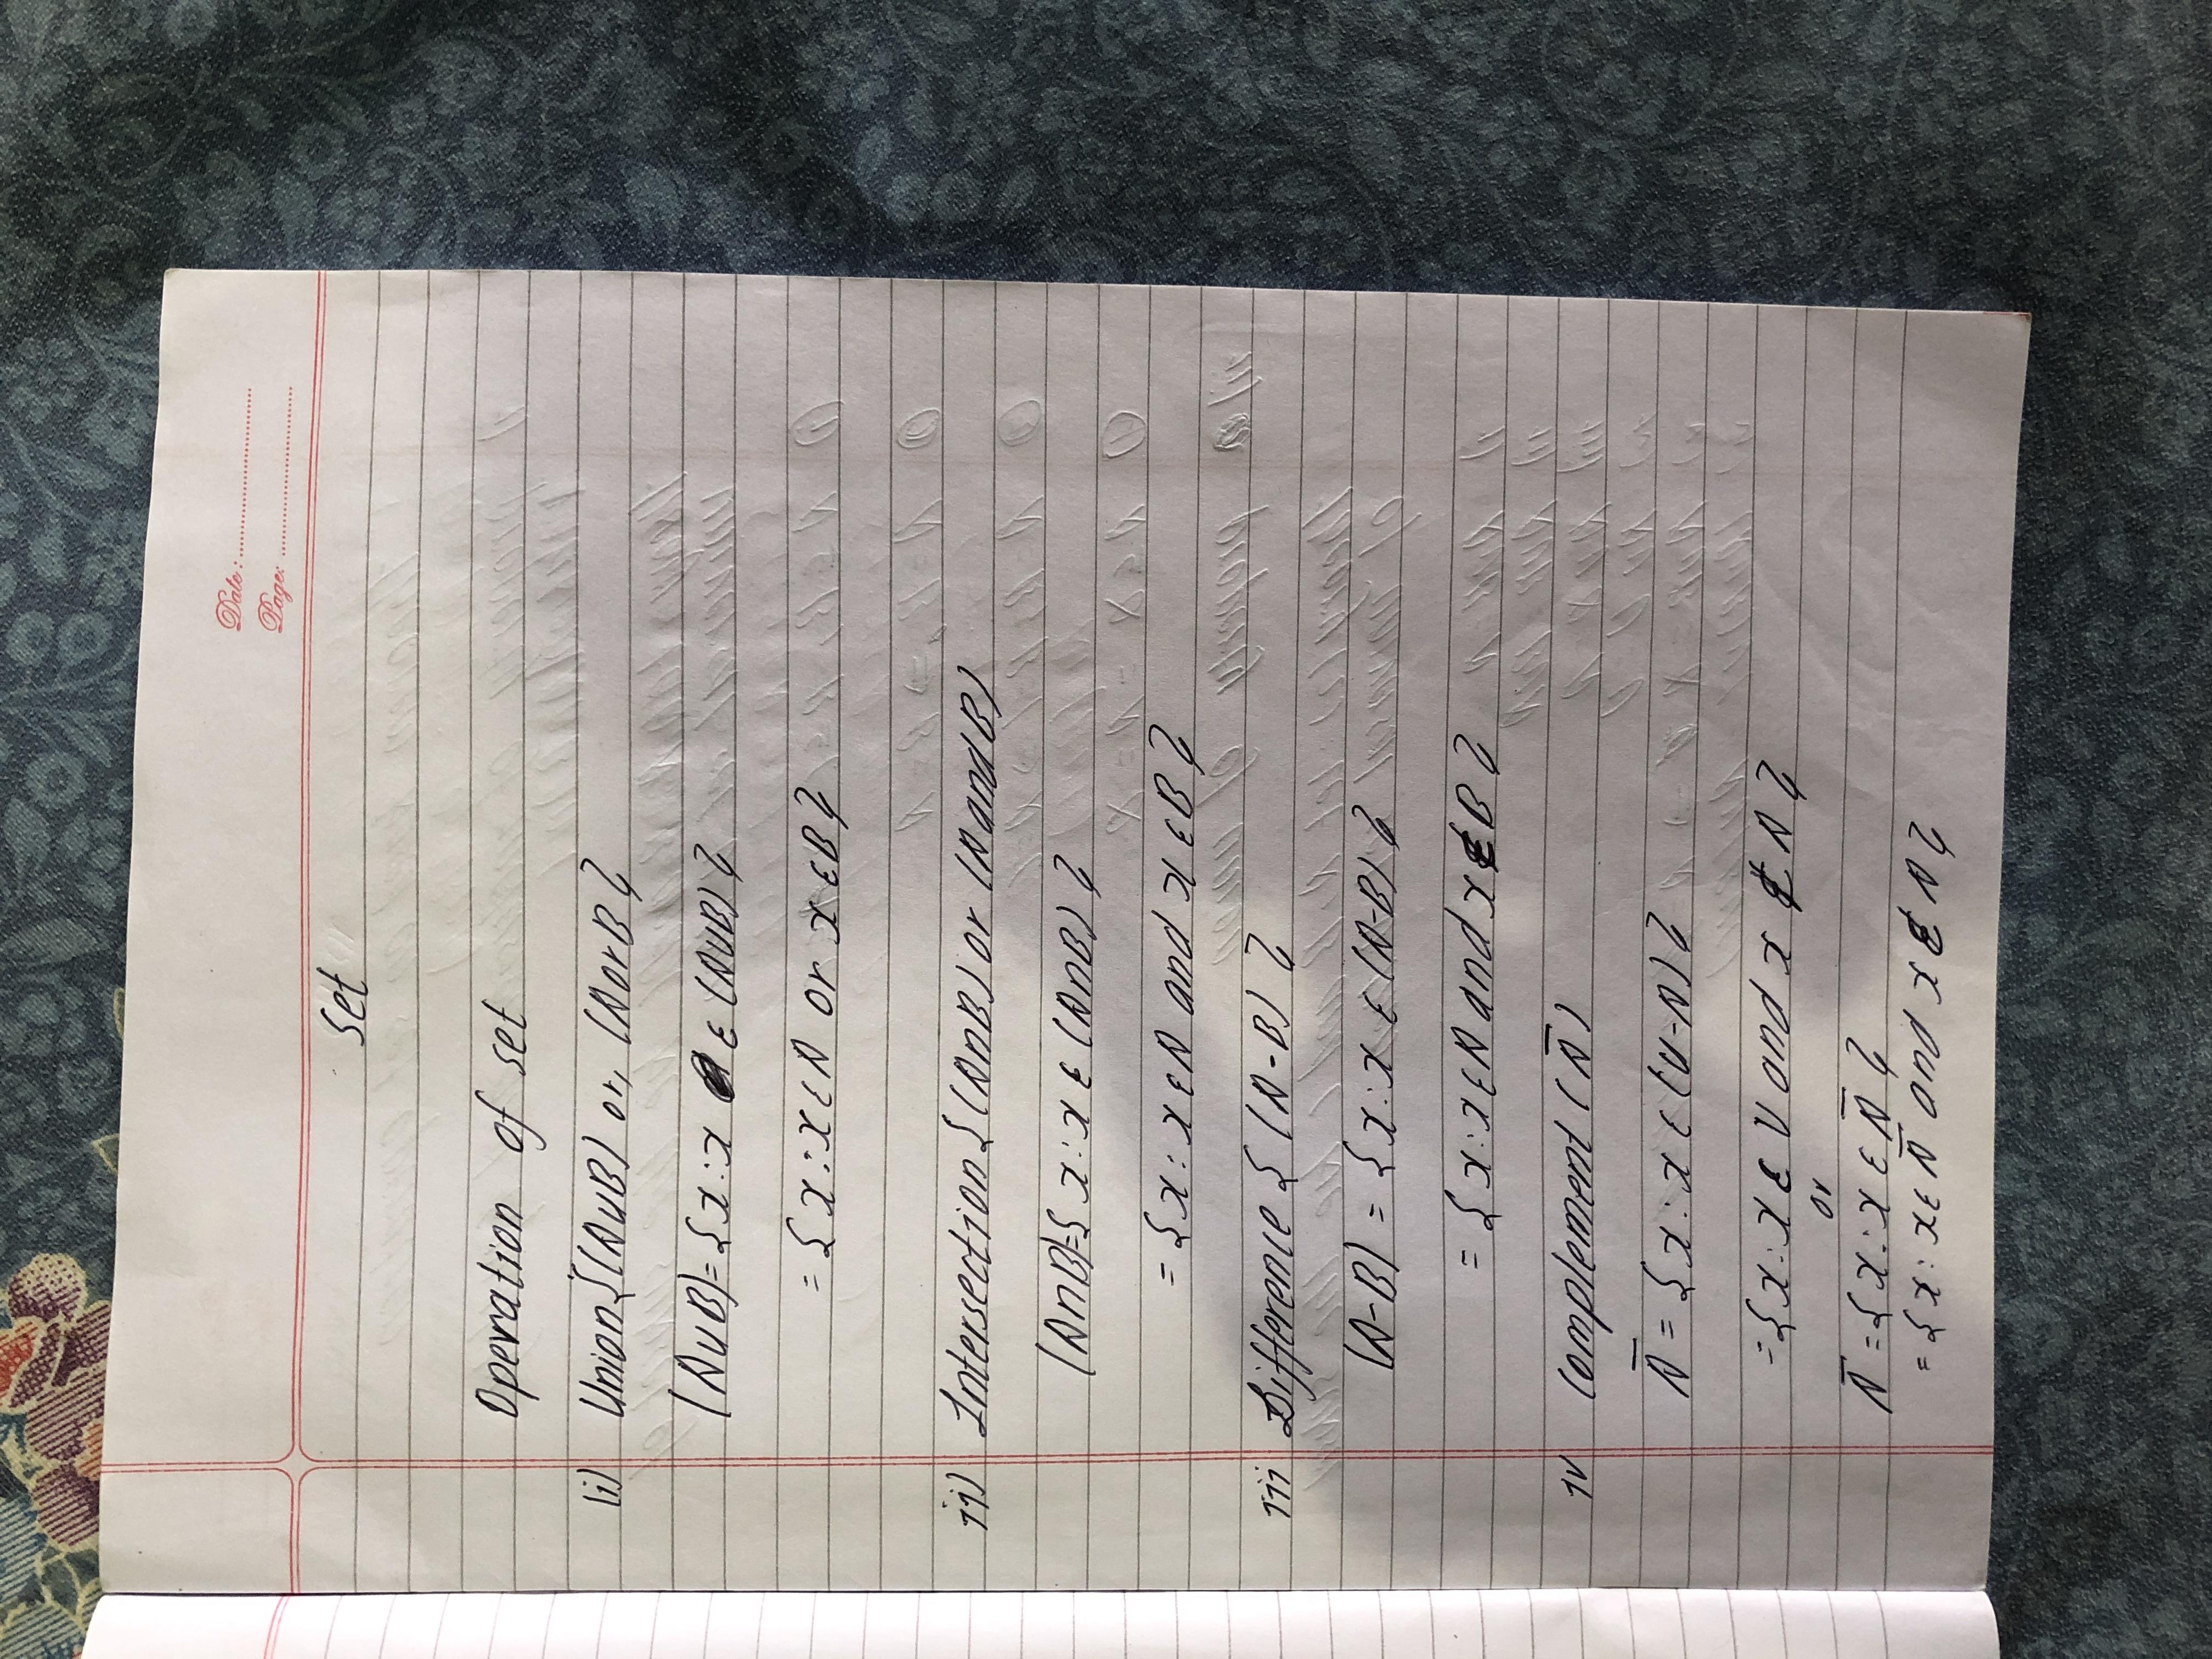 Date:
Page:
Set
Operation of set
(i) Union {(A∪B) or, (A or B}
(A∪B) = {x : x ∈ (A∪B)}
= {x : x ∈ A or x ∈ B}
ii) Intersection {(A∩B) or (A and B)
(A∩B) = {x : x ∈ (A∩B)}
= {x : x ∈ A and x ∈ B}
iii Difference {(A-B)}
(A-B) = {x : x ∈ (A-B)}
= {x : x ∈ A and x ∉ B}
iv Complement (A̅)
A̅ = {x : x ∈ (U-A)}
= {x : x ∈ U and x ∉ A}
or
A̅ = {x : x ∈ A̅}
= {x : x ∈ A̅ and x ∉ A}